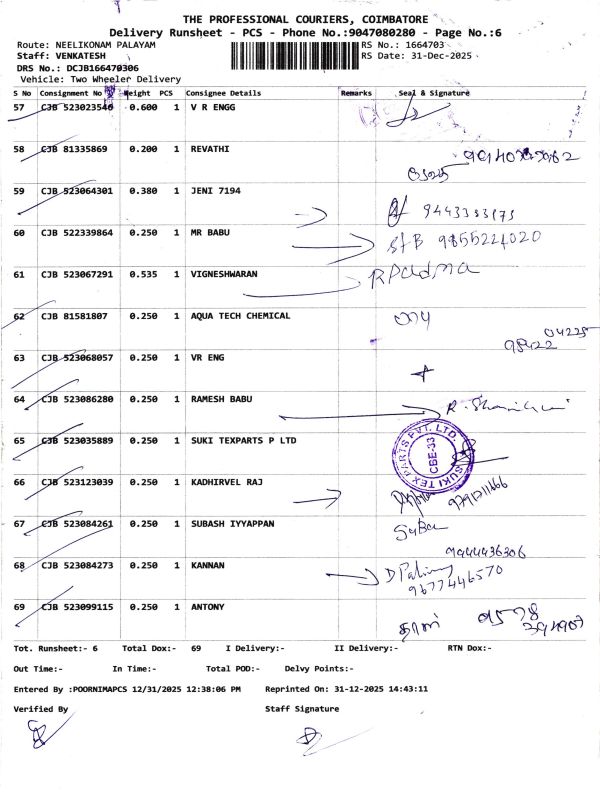 THE PROFESSIONAL COURIERS, COIMBATORE
Delivery Runsheet - PCS - Phone No.:9047080280 - Page No.:6
Route: NEELIKONAM PALAYAM RS No.: 1664703
Staff: VENKATESH RS Date: 31-Dec-2025
DRS No.: DCJB166470306
Vehicle: Two Wheeler Delivery
S No Consignment No Weight PCS Consignee Details Remarks Seal & Signature
57 CJB 523023540 0.600 1 V R ENGG
58 CJB 81335869 0.200 1 REVATHI
59 CJB 523064301 0.380 1 JENI 7194
60 CJB 522339864 0.250 1 MR BABU SFB 9855224020
61 CJB 523067291 0.535 1 VIGNESHWARAN RPadma
62 CJB 81581807 0.250 1 AQUA TECH CHEMICAL
04225
98422
63 CJB 523068057 0.250 1 VR ENG
64 CJB 523086280 0.250 1 RAMESH BABU
65 CJB 523035889 0.250 1 SUKI TEXPARTS P LTD
SUKI TEXPARTS PVT. LTD.
CBE-33
66 CJB 523123039 0.250 1 KADHIRVEL RAJ
67 CJB 523084261 0.250 1 SUBASH IYYAPPAN
9444436306
68 CJB 523084273 0.250 1 KANNAN
9677446570
69 CJB 523099115 0.250 1 ANTONY
Tot. Runsheet:- 6 Total Dox:- 69 I Delivery:- II Delivery:- RTN Dox:-
Out Time:- In Time:- Total POD:- Delvy Points:-
Entered By :POORNIMAPCS 12/31/2025 12:38:06 PM Reprinted On: 31-12-2025 14:43:11
Verified By Staff Signature